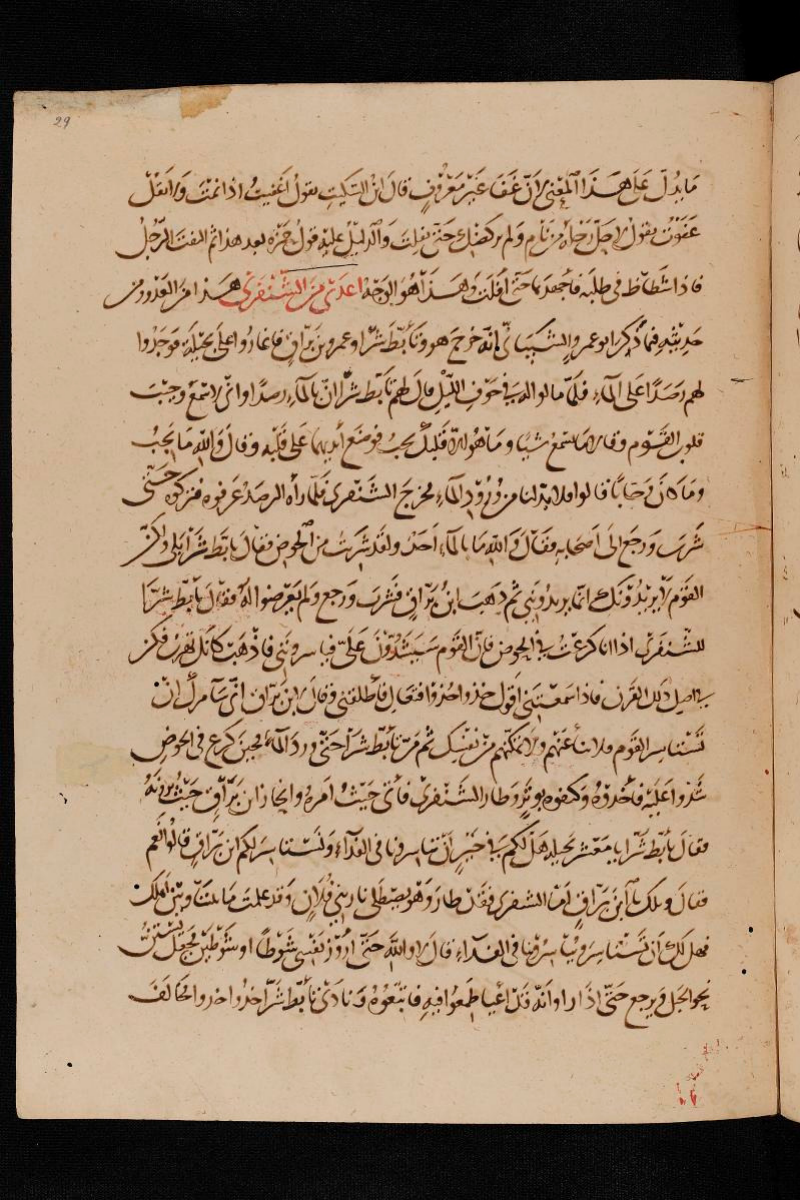 29
ما يدل على هذا المعنى لان غفا غير معروف قال ابن السكيت يقول اغفيت اذا نمت ولا تقل
غفوت يقول لاجل نجاه من نايم ولم يركضك حتى يفلت والدليل عليه قول حمزه بعد هذا ثم التفت الرجل
فاذا شظاظ في طلبه فاجهدها حتى افلت وهذا هو الوجه اعدى من الشنفرى هذا من العدو ومن
حديثه فيما ذكر ابو عمرو الشيباني انه خرج هو وتأبط شرا وعمرو بن براق فاغاروا على بجيلة فوجدوا
لهم رصدا على الماء فلما مالوا له في جوف الليل قال لهم تأبط شرا ان بالماء رصدا واني لاسمع وجيب
قلوب القوم وقالا ما نسمع شيا وما هو الا قلبك يجب فوضع ايديهما على قلبه وقال والله ما يجب
وما كان وجابا قالوا فلا بد لنا من ورود الماء فخرج الشنفرى فلما رآه الرصد عرفوه فتركوه حتى
شرب ورجع الى اصحابه فقال والله ما بالماء احد ولقد شربت من الحوض فقال تابط شرا بلى ولكن
القوم لا يريدونك انما يريدونني ثم ذهب ابن براق فشرب ورجع ولم يعرضوا له فقال تابط شرا
للشنفرى اذا انا كرعت في الحوض فان القوم سيشدون علي فياسرونني فاذهب كانك تهرب فكن
في اصل ذلك القرن فاذا سمعتني اقول خذوا خذوا فتعال فأطلقني وقال لابن براق اني سآمرك ان
تستاسر القوم فلا تنأ عنهم ولا تمكنهم من نفسك ثم مر تأبط شرا حتى ورد الماء فحين كرع في الحوض
شدوا عليه فأخذوه وكتفوه بوتر وطار الشنفرى فأتى حيث امره وانحاز ابن براق حيث يرونه
فقال تأبط شرا يا معشر بجيلة هل لكم في خير ان تياسرونا في الفداء ويستاسر لكم ابن براق قالوا نعم
فقال ويلك يا ابن براق اما الشنفرى فقد طار وهو يصطلي نار بني فلان وقد علمت ما بيننا وبين اهلك
فهل لك ان تستاسر ويياسرونا في الفداء قال لا والله حتى اروز نفسي شوطا او شوطين فجعل يستن
نحو الجبل ويرجع حتى اذا راوا انه قد اعيا طمعوا فيه فاتبعوه ونادى تأبط شرا خذوا خذوا فخالف